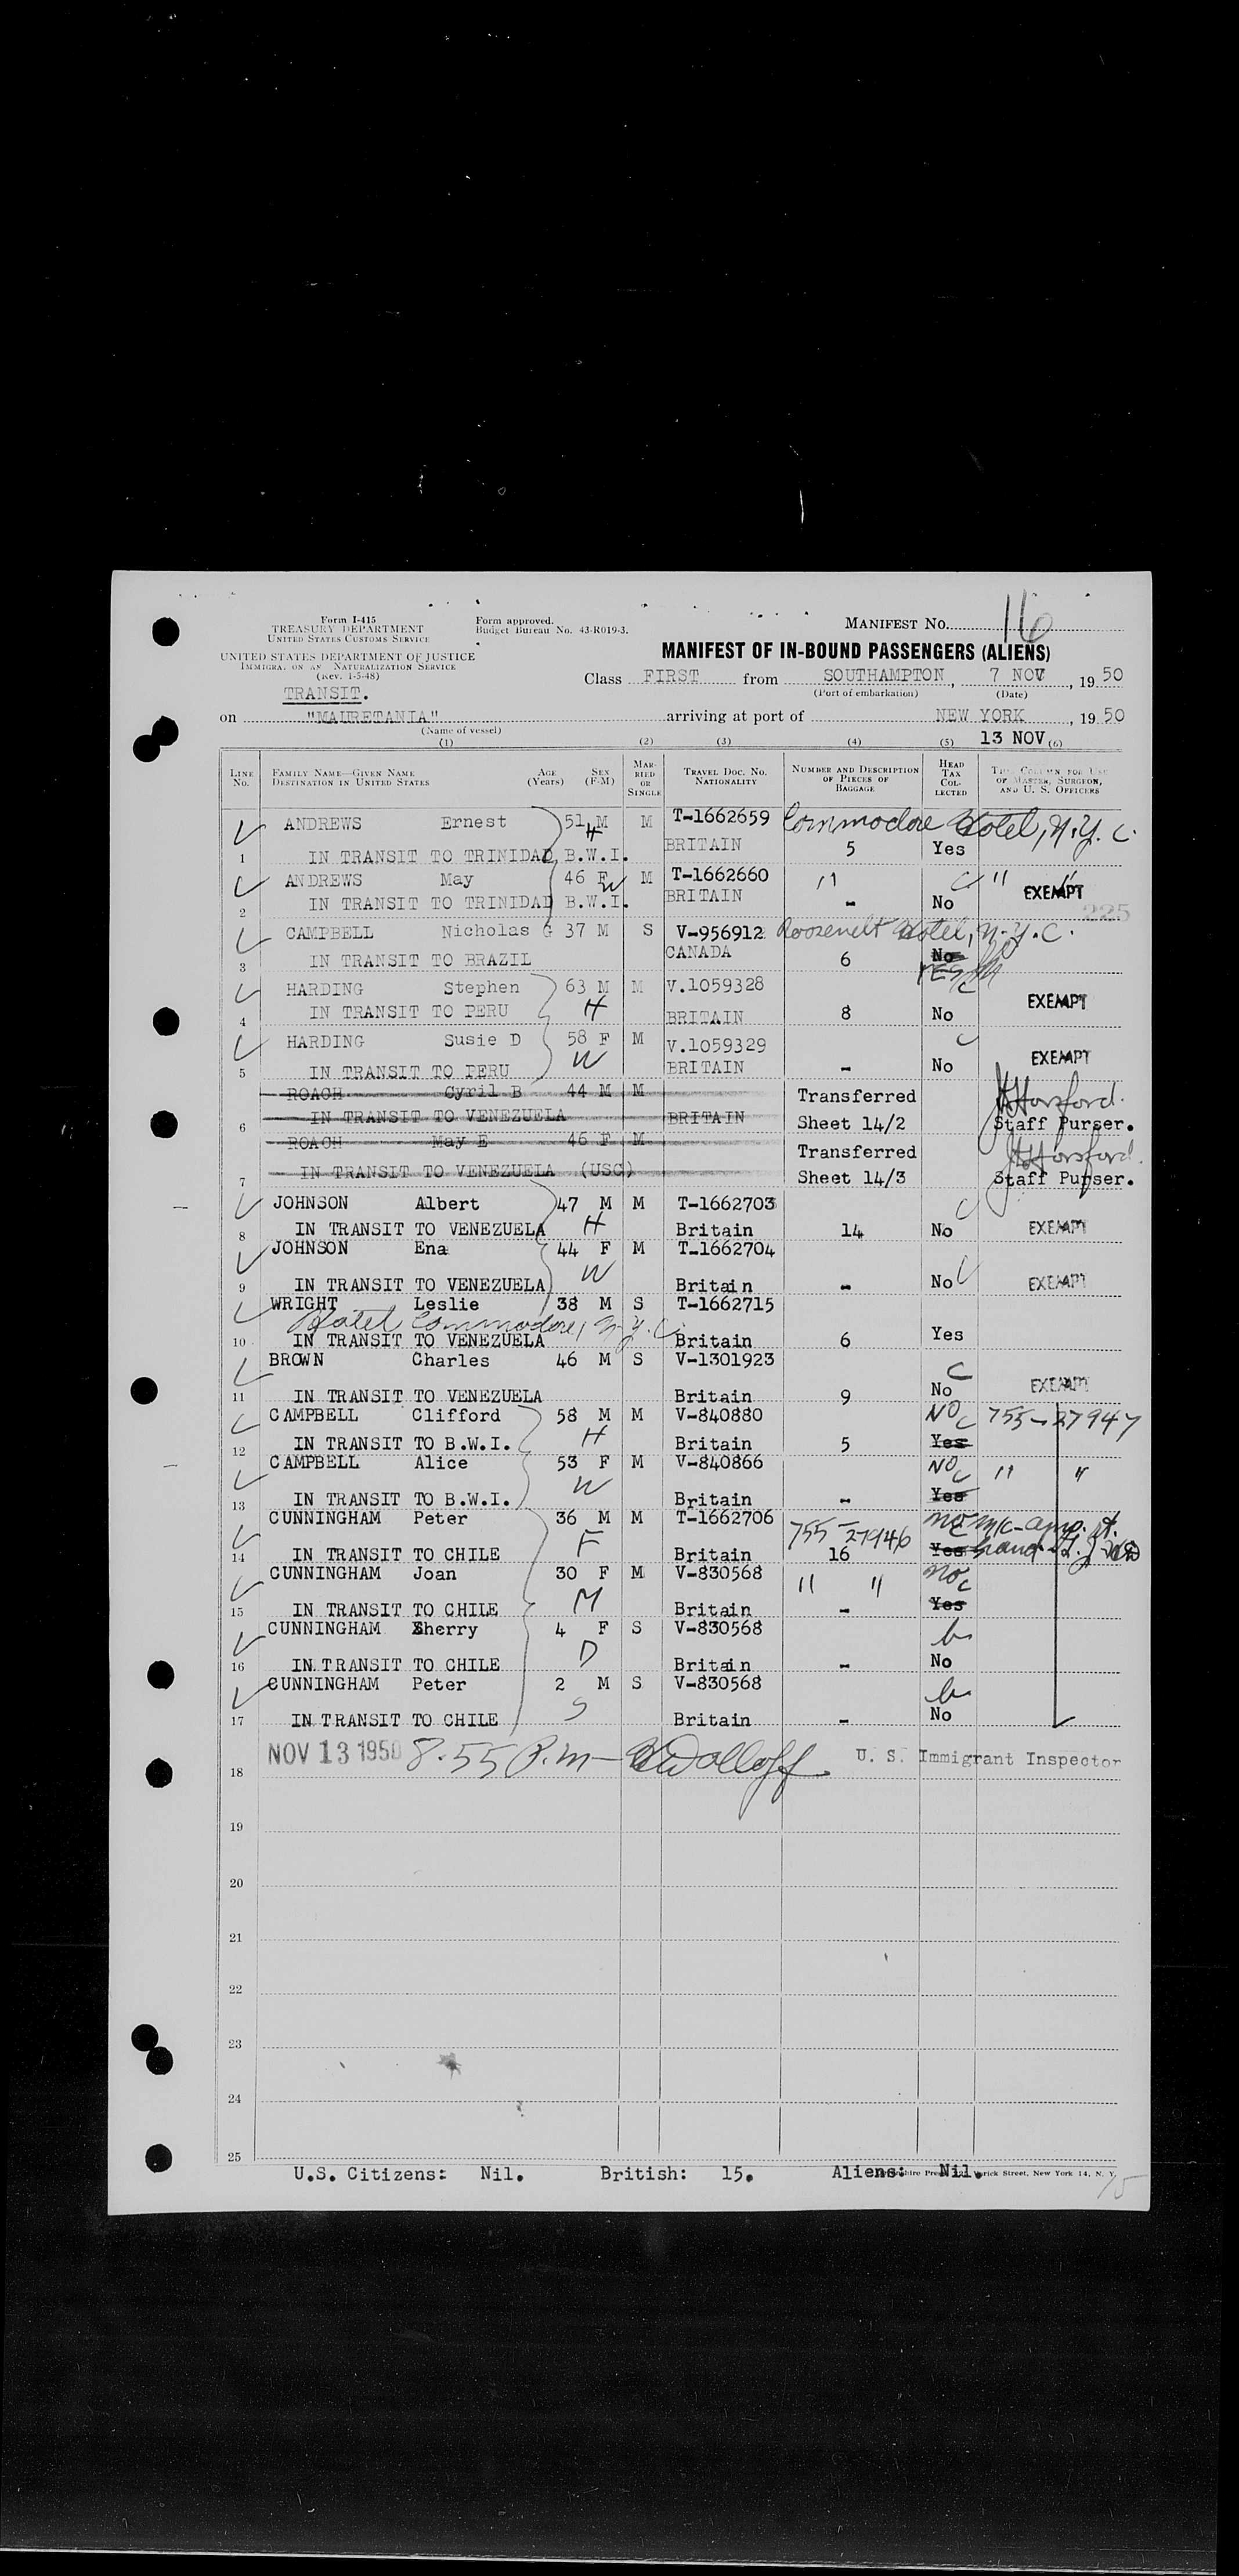 Form I-415
TREASURY DEPARTMENT
UNITED STATES CUSTOMS SERVICE
Form approved.
Budget Bureau No. 43-R019-3.
MANIFEST NO. 16
UNITED STATES DEPARTMENT OF JUSTICE
IMMIGRA. ON AN NATURALIZATION SERVICE
(Rev. 1-5-48)
MANIFEST OF IN-BOUND PASSENGERS (ALIENS)
TRANSIT.
Class FIRST from SOUTHAMPTON, 7 NOV, 19 50
(Port of embarkation) (Date)
on "MAURETANIA" arriving at port of NEW YORK, 19 50
(Name of vessel)
13 NOV
(1) (2) (3) (4) (5) (6)
LINE NO. FAMILY NAME—GIVEN NAME DESTINATION IN UNITED STATES AGE (Years) SEX (F-M) MARRIED OR SINGLE TRAVEL DOC. NO. NATIONALITY NUMBER AND DESCRIPTION OF PIECES OF BAGGAGE HEAD TAX COLLECTED THIS COLUMN FOR USE OF MASTER, SURGEON, AND U. S. OFFICERS
ANDREWS Ernest 51 M H M T-1662659 Commodore Hotel, N.Y.C.
1 IN TRANSIT TO TRINIDAD B.W.I. BRITAIN 5 Yes
ANDREWS May 46 F W M T-1662660 " C " " EXEMPT
2 IN TRANSIT TO TRINIDAD B.W.I. BRITAIN - No 225
CAMPBELL Nicholas G 37 M S V-956912 Roosevelt Hotel, N.Y.C.
3 IN TRANSIT TO BRAZIL CANADA 6 No YES
HARDING Stephen 63 M M V.1059328 C EXEMPT
4 IN TRANSIT TO PERU H BRITAIN 8 No
HARDING Susie D 58 F M V.1059329 C EXEMPT
5 IN TRANSIT TO PERU W BRITAIN - No
ROACH Cyril B 44 M M Transferred
6 IN TRANSIT TO VENEZUELA BRITAIN Sheet 14/2 Staff Purser.
ROACH May E 46 F M Transferred
7 IN TRANSIT TO VENEZUELA (USC) Sheet 14/3 Staff Purser.
JOHNSON Albert 47 M M T-1662703 C
8 IN TRANSIT TO VENEZUELA H Britain 14 No EXEMPT
JOHNSON Ena 44 F M T-1662704
9 IN TRANSIT TO VENEZUELA W Britain - No C EXEMPT
WRIGHT Leslie 38 M S T-1662715
Hotel Commodore, N.Y.C.
10 IN TRANSIT TO VENEZUELA Britain 6 Yes
BROWN Charles 46 M S V-1301923 C
11 IN TRANSIT TO VENEZUELA Britain 9 No EXEMPT
CAMPBELL Clifford 58 M M V-840880 NO C 755-27947
12 IN TRANSIT TO B.W.I. H Britain 5 Yes
CAMPBELL Alice 53 F M V-840866 NO C " "
13 IN TRANSIT TO B.W.I. W Britain - Yes
CUNNINGHAM Peter 36 M M T-1662706 755-27946 no C
14 IN TRANSIT TO CHILE F Britain 16 Yes
CUNNINGHAM Joan 30 F M V-830568 " " no C
15 IN TRANSIT TO CHILE M Britain - Yes
CUNNINGHAM Sherry 4 F S V-830568
16 IN TRANSIT TO CHILE D Britain - No
CUNNINGHAM Peter 2 M S V-830568
17 IN TRANSIT TO CHILE S Britain - No
18 NOV 13 1950 8.55 P.m - U. S. Immigrant Inspector
19
20
21
22
23
24
25
U.S. Citizens: Nil. British: 15. Aliens: Nil. Street, New York 14, N. Y.
15